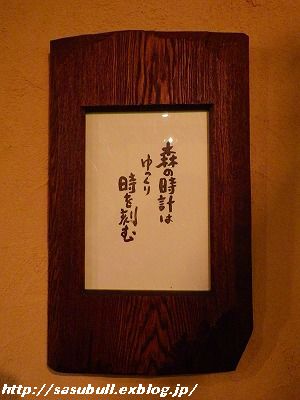 森の時計は
ゆっくり
時を刻む
http://sasubull.exblog.jp/